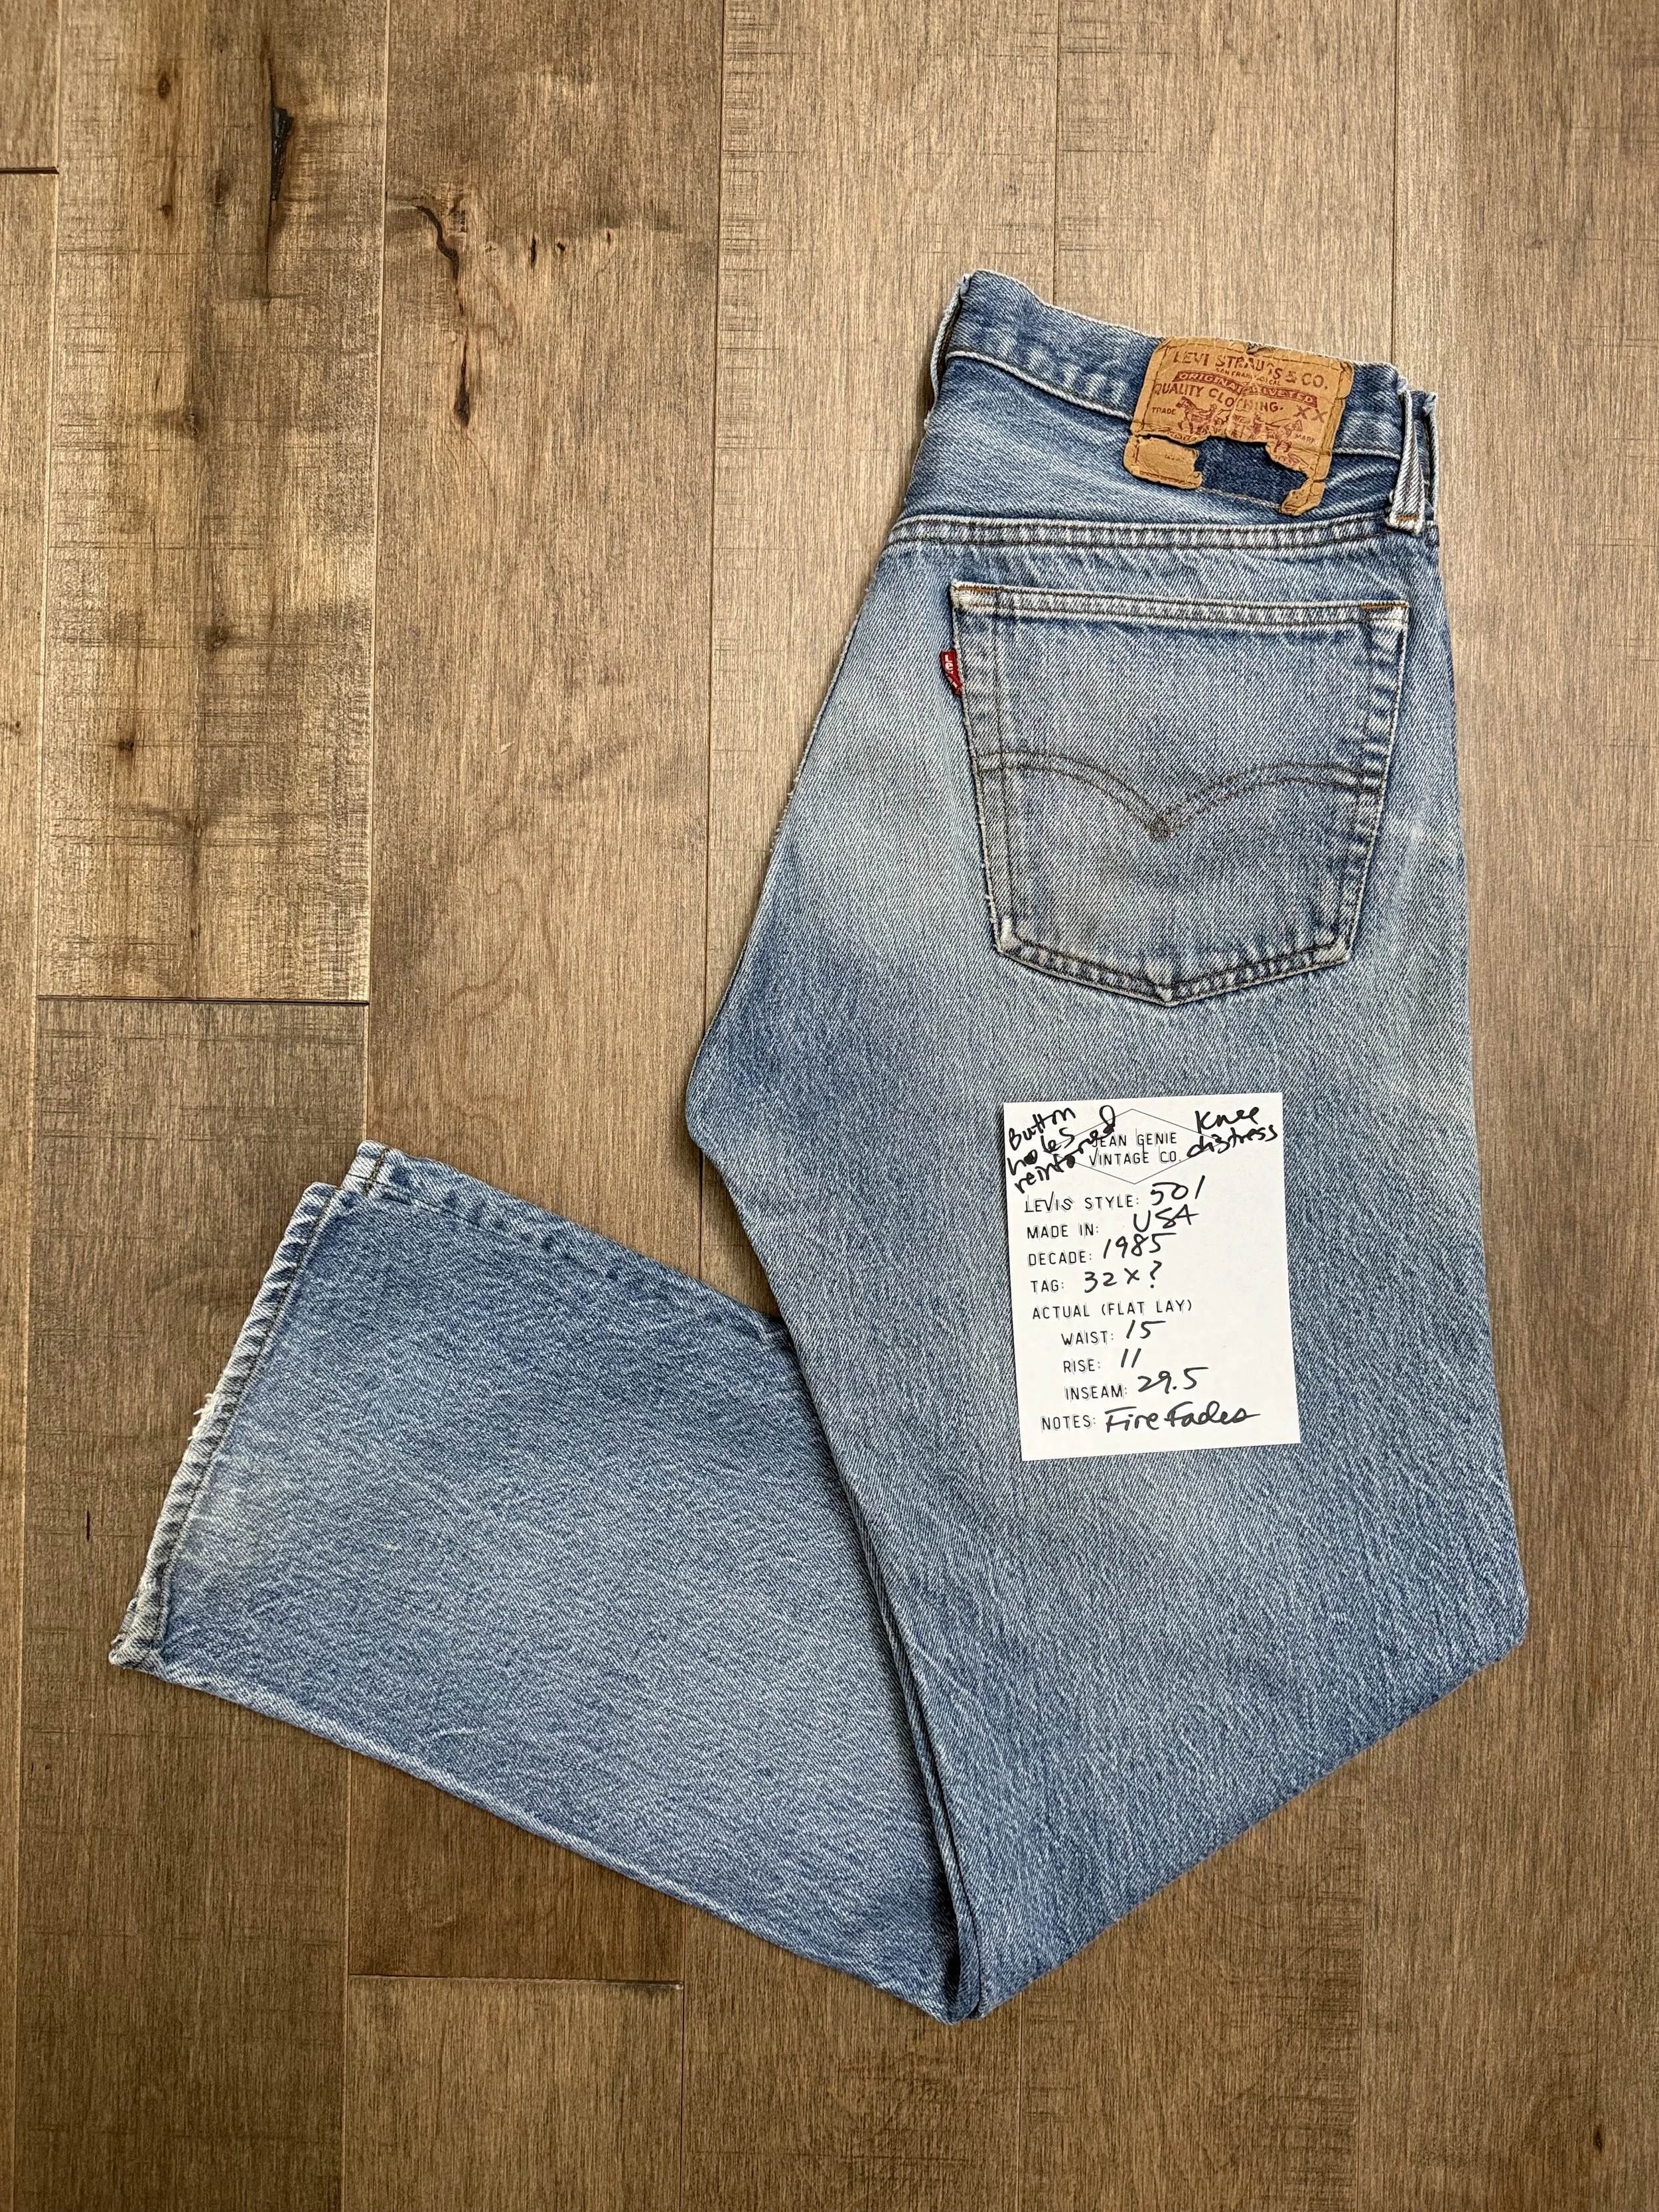 LEVI STRAUSS & CO.
ORIGINAL RIVETED
QUALITY CLOTHING.
XX
TRADE
MARK
Button
holes
reinforced
Knee
distress
JEAN GENIE
VINTAGE CO.
LEVIS STYLE: 501
MADE IN: USA
DECADE: 1985
TAG: 32 x ?
ACTUAL (FLAT LAY)
WAIST: 15
RISE: 11
INSEAM: 29.5
NOTES: Fire Fades